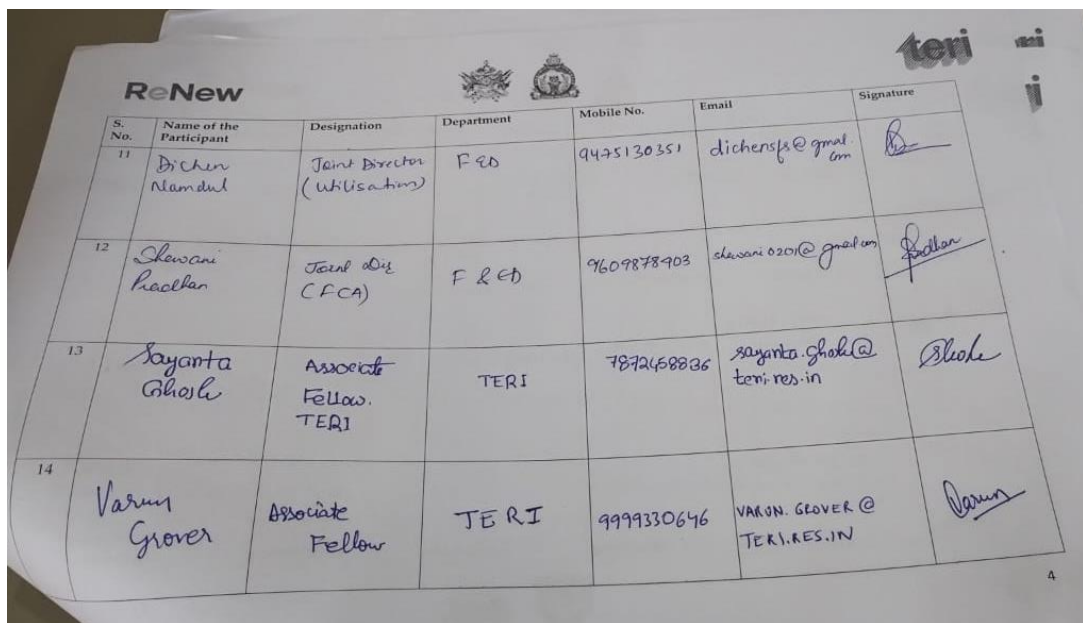 ReNew
teri
S. No.
Name of the Participant
Designation
Department
Mobile No.
Email
Signature
11
Dichen
Namdul
Joint Director
(Utilisation)
F ED
9475130351
dichensfs@gmail.
com
12
Shewani
Pradhan
Joint Dir
(FCA)
F & ED
9609878903
shewani0201@gmail.com
Pradhan
13
Sayanta
Ghosh
Associate
Fellow.
TERI
TERI
7872458836
sayanta.ghosh@
teri.res.in
Ghosh
14
Varun
Grover
Associate
Fellow
TERI
9999330646
VARUN. GROVER @
TERI.RES.IN
Varun
4